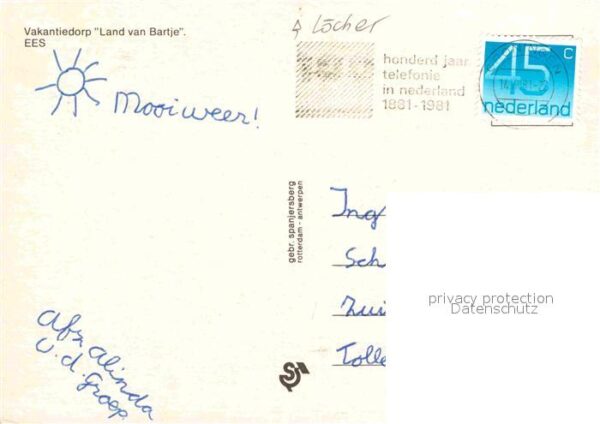 Vakantiedorp "Land van Bartje".
EES
4 Löcher
honderd jaar
telefonie
in nederland
1881-1981
45 c
nederland
Mooi weer!
gebr. spanjersberg
rotterdam - antwerpen
Ing
Sch
Zui
Tolle
privacy protection
Datenschutz
Afz. Alinda
v.d. Groep.